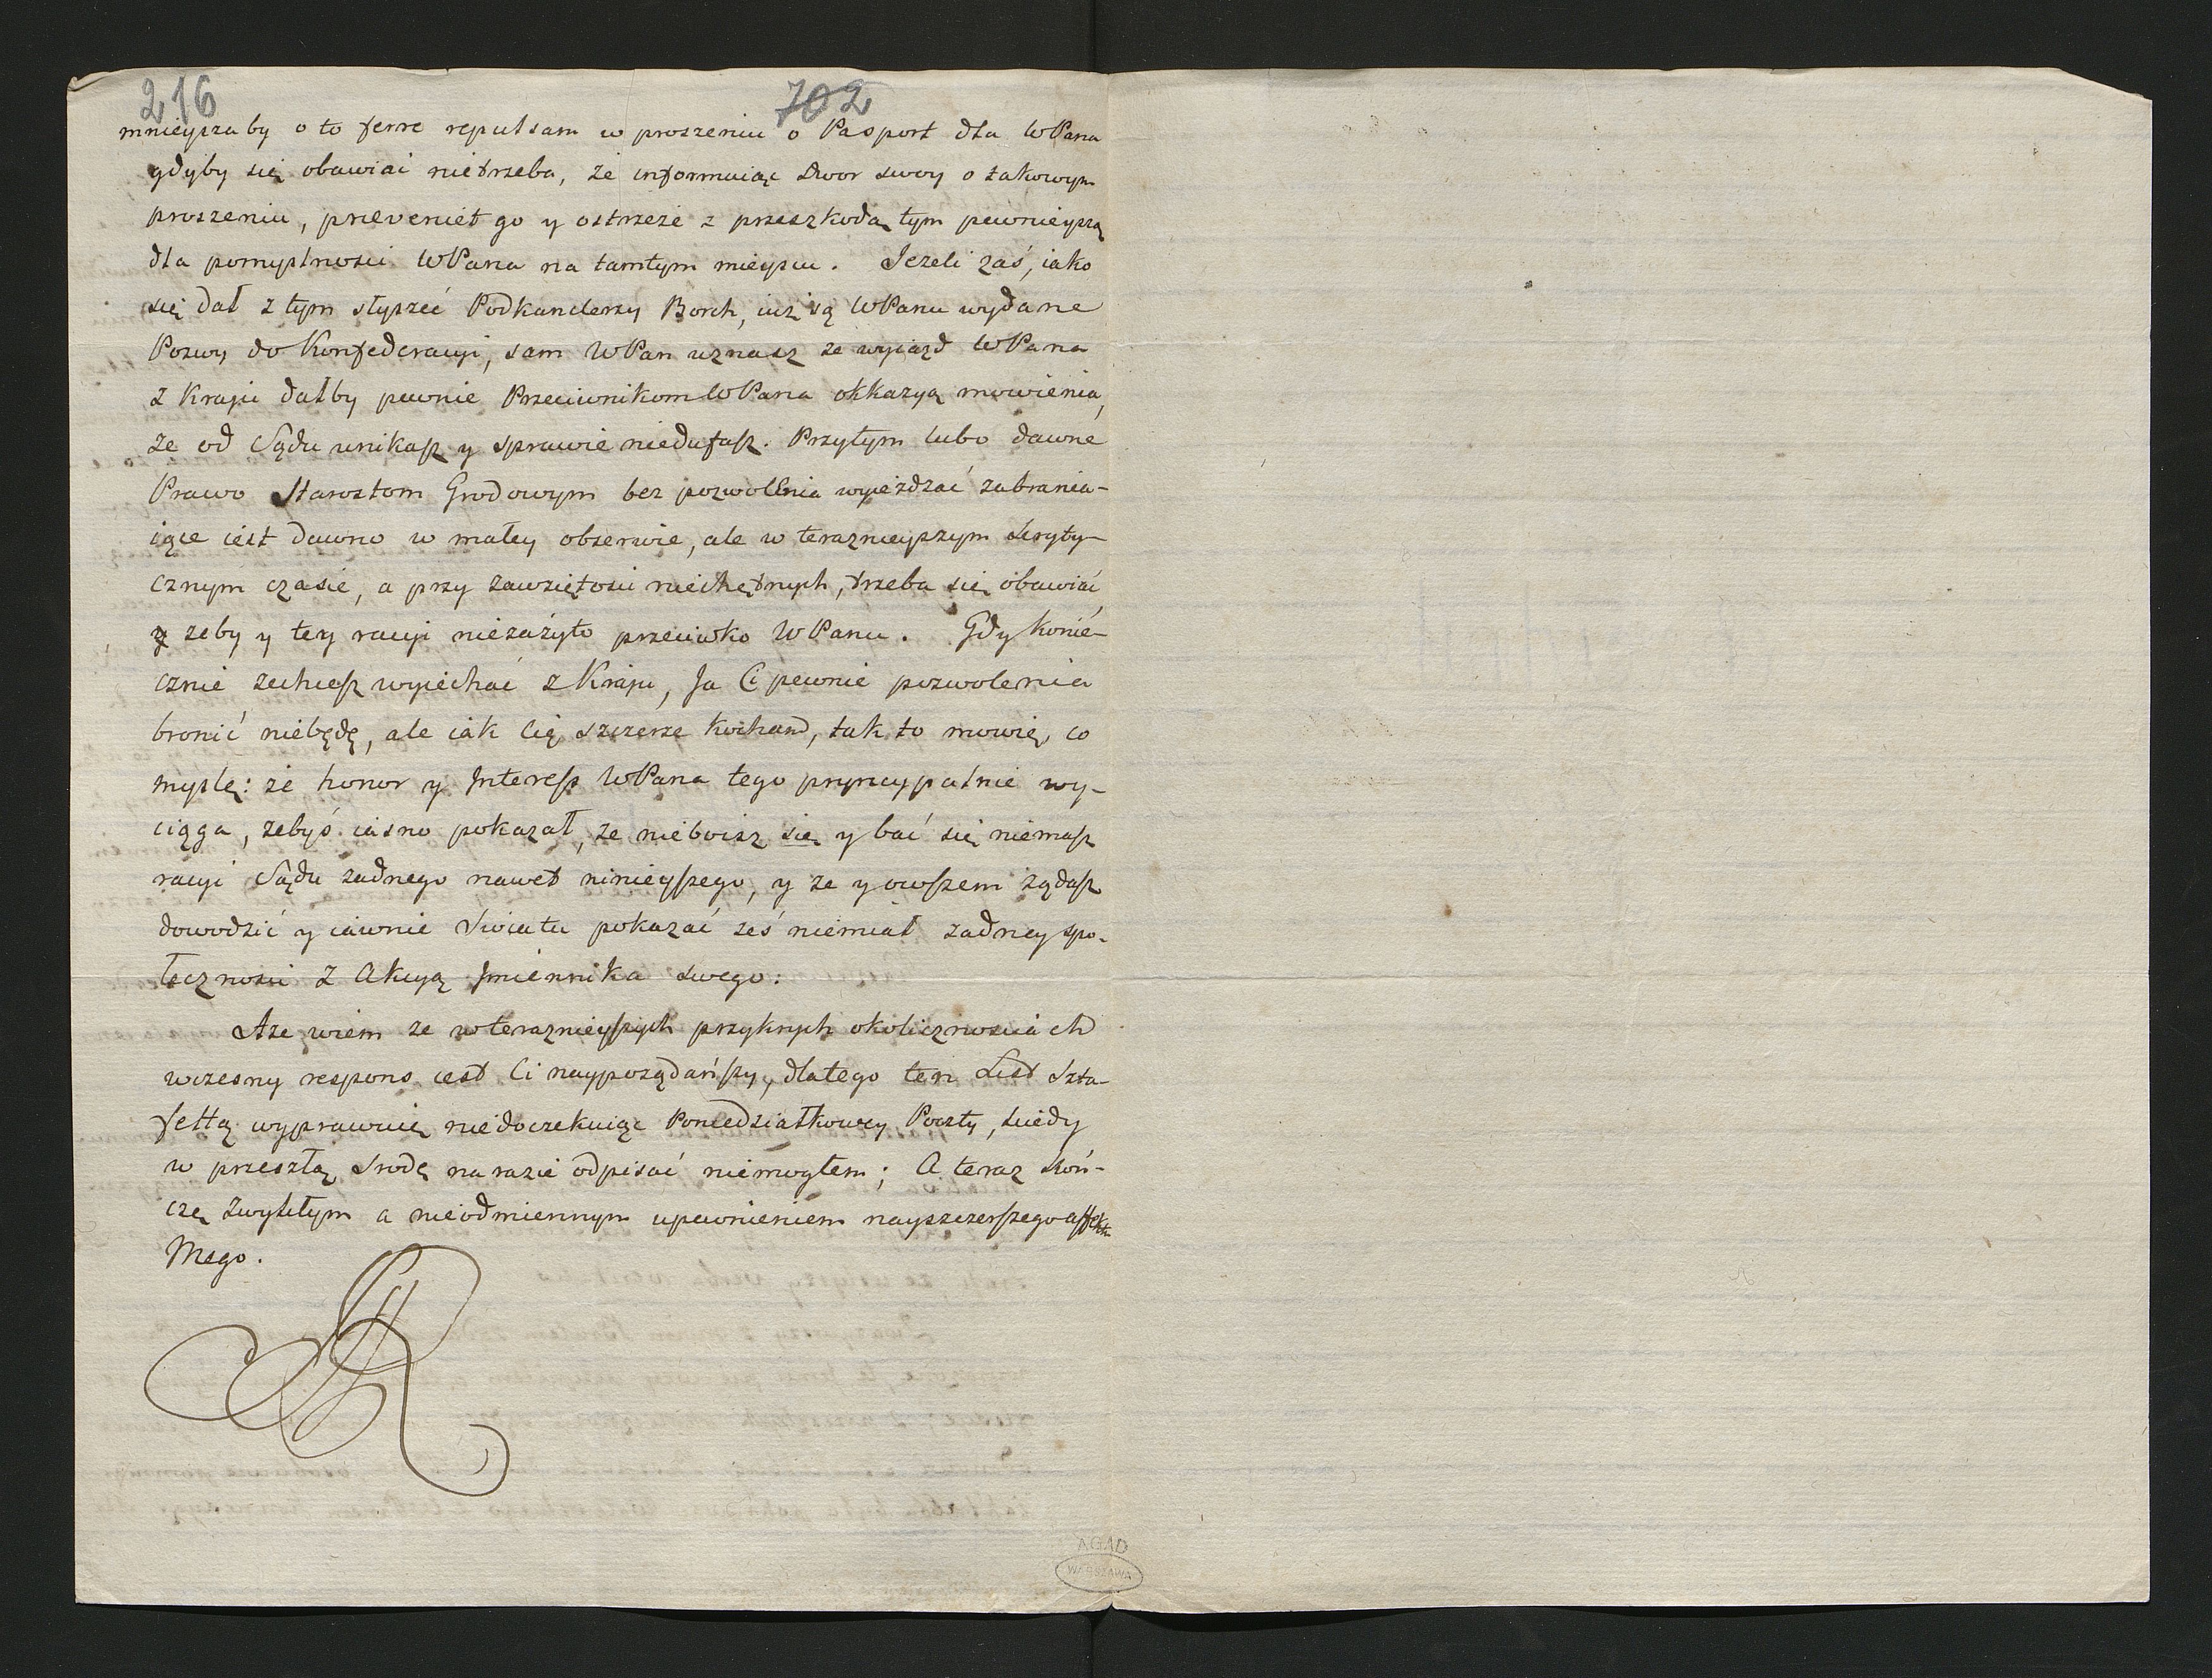 216
702
mnieysza by o to ferre repulsam w proszeniu o Pasport dla WPana
gdyby się obawiać nietrzeba, że informuiąc Dwor swoy o takowym
proszeniu, preveniet go y ostrzeże z przeszkodą tym pewnieyszą
dla pomyslnosci WPana na tamtym mieyscu. Jezeli zaś, iako
się dał z tym słyszeć Podkanclerzy Borch, iuż są WPanu wydane
Pozwy do Konfederacyi, sam WPan uznasz ze wyiazd WPana
z Kraju dałby pewnie Przeciwnikom WPana okkazyą mowienia,
ze od Sądu unikasz y sprawie niedufasz. Przytym lubo dawne
Prawo Starostom Grodowym bez pozwolenia wyieżdzać zabrania-
iące iest dawno w małey obserwie, ale w teraznieyszym kryty-
cznym czasie, a przy zawziętosci niechętnych, trzeba się obawiać
zeby y tey racyi niezażyto przeciwko WPanu. Gdy konie-
cznie zechcesz wyiechać z Kraju, Ja Ci pewnie pozwolenia
bronić niebędę, ale iak Cię szczerze kocham, tak to mowię, co
myslę: że honor y Interess WPana tego pryncypalnie wy-
ciąga, żebyś iasno pokazał, ze nieboisz się y bać się niemasz
racyi Sądu zadnego nawet ninieyszego, y ze y owszem żądasz
dowodzić y iawnie Swiatu pokazać żeś niemiał zadney spo-
łecznosci z Akcyą Imiennika swego.
Aże wiem ze w teraznieyszych przykrych okolicznosciach
wczesny respons iest Ci naypożądańszy, dlatego ten List Szta-
fettą wyprawuię niedoczekuiąc Poniedziałkowey Poczty, kiedy
w przeszłą Srodę na razie odpisać niemogłem; A teraz koń-
czę zwykłym a nieodmiennym upewnieniem nayszczerszego affektu
Mego.
SAR
AGAD
WARSZAWA